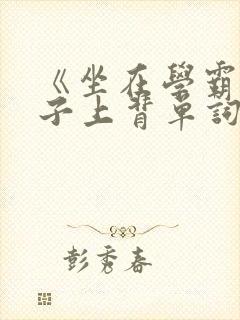 《坐在學霸
子上背單詞
彭秀春